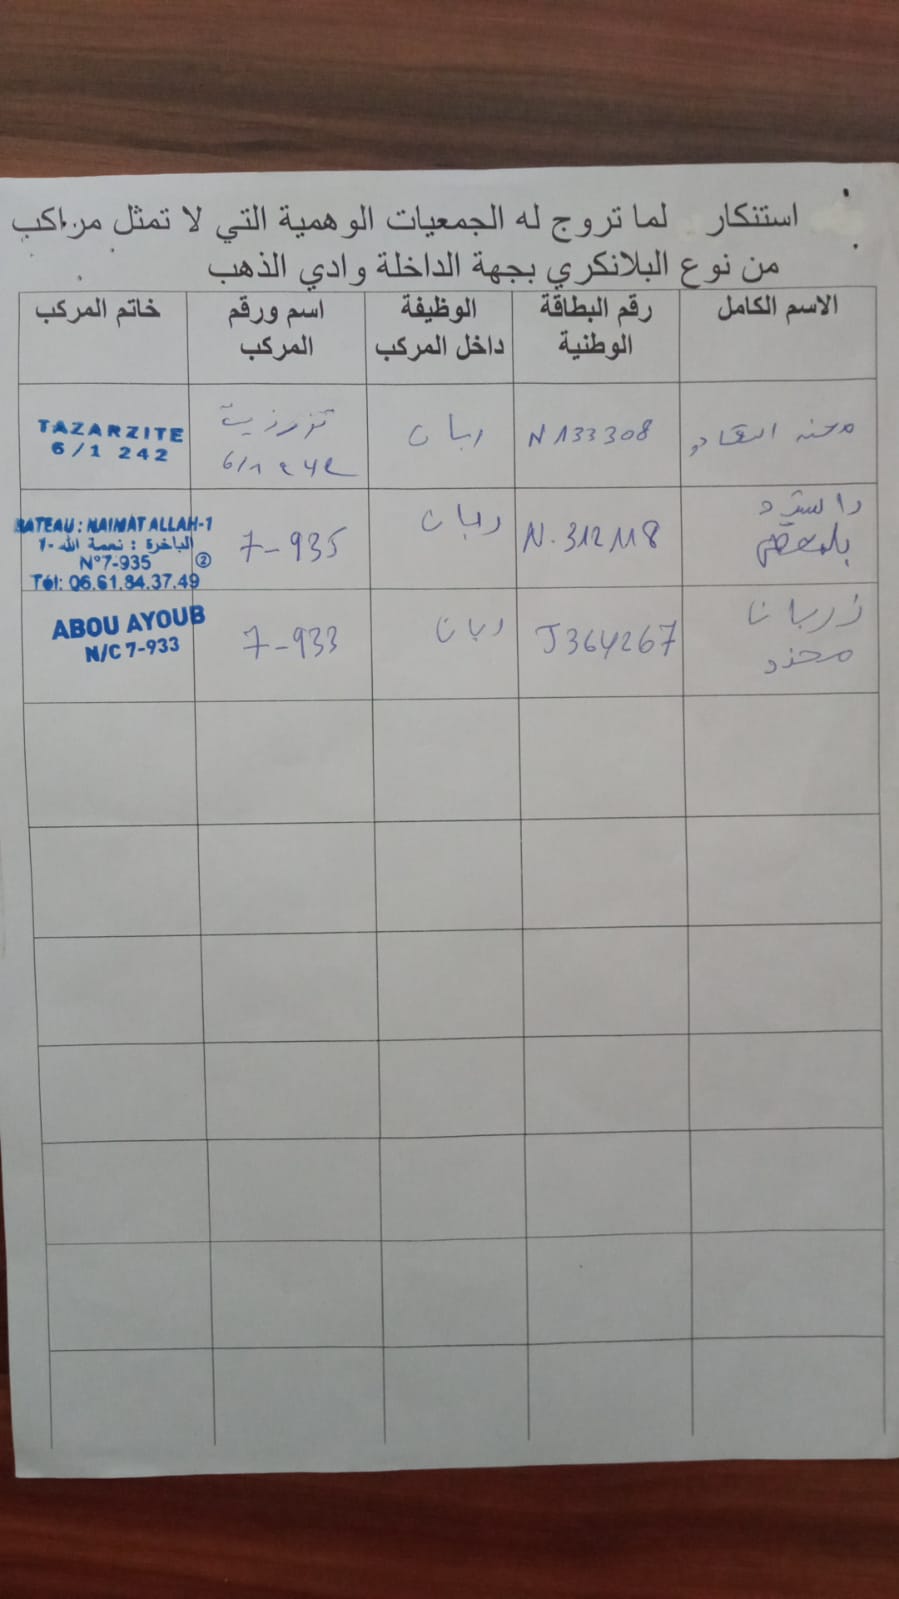 استنكار لما تروج له الجمعيات الوهمية التي لا تمثل مراكب
من نوع البلانكري بجهة الداخلة وادي الذهب
الاسم الكامل
رقم البطاقة الوطنية
الوظيفة داخل المركب
اسم ورقم المركب
خاتم المركب
N133308
ربان
تزرزيت
6/1 242
TAZARZITE
6/1 242
N.312118
ربان
7-935
BATEAU: NAIMAT ALLAH-1
الباخرة : نعمة الله -1
N°7-935 ②
Tél: 06.61.84.37.49
زربان
J364267
ربان
7-933
ABOU AYOUB
N/C 7-933